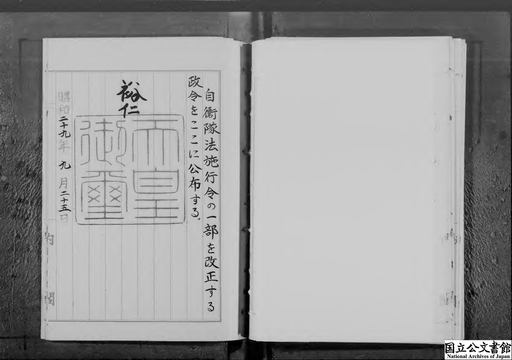 自衛隊法施行令の一部を改正する
政令をここに公布する。
裕仁
天皇御璽
昭和二十九年九月二十五日
内閣
国立公文書館
National Archives of Japan